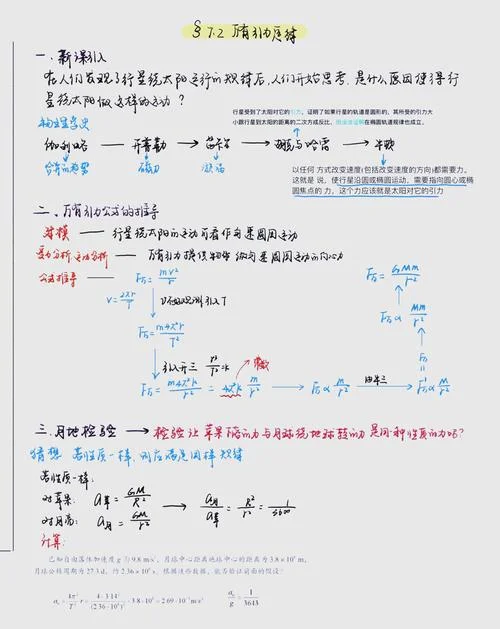 §7.2 万有引力定律
一.新课引入
在人们发现了行星绕太阳运行的规律后,人们开始思考,是什么原因使得行
星绕太阳做这样的运动?
行星受到了太阳对它的引力。证明了如果行星的轨道是圆形的,其所受的引力大
小跟行星到太阳的距离的二次方成反比。但没法证明在椭圆轨道规律也成立。
物理学史
伽利略 → 开普勒 → 笛卡尔 → 胡克与哈雷 → 牛顿
合并的趋势 磁力 漩涡
以任何方式改变速度(包括改变速度的方向)都需要力。
这就是说,使行星沿圆或椭圆运动,需要指向圆心或椭
圆焦点的力,这个力应该就是太阳对它的引力
二.万有引力公式的推导
建模 — 行星绕太阳的运动可看作匀速圆周运动
受力分析,运动分析 — 万有引力提供物体做匀速圆周运动的向心力
公式推导 — F万=mv²/r
v=2πr/T
v不好观测,引入T
F万=m4π²r/T²
引入开三 r³/T²=k
常数
F万=m4π²k/r² = 4π²k m/r² → F万∝m/r² 由牛三 → F万'∝M/r²
F万 ∝ Mm/r²
F万=GMm/r²
三.月地检验 → 检验让苹果下落的力与月球绕地球转的力是同一种性质的力吗?
猜想 若性质一样,则应满足同样规律
若性质一样:
对苹果: a苹=GM/R²
对月亮: a月=GM/r²
→ a月/a苹=R²/r²=1/3600
计算:
已知自由落体加速度 g 为 9.8 m/s²,月球中心距离地球中心的距离为 3.8×10⁸ m,
月球公转周期为 27.3 d,约 2.36×10⁶ s。根据这些数据,能否验证前面的假设?
a月=4π²/T² r=4×3.14²/(2.36×10⁶)²×3.8×10⁸=2.69×10⁻³ m/s² a月/g=1/3643